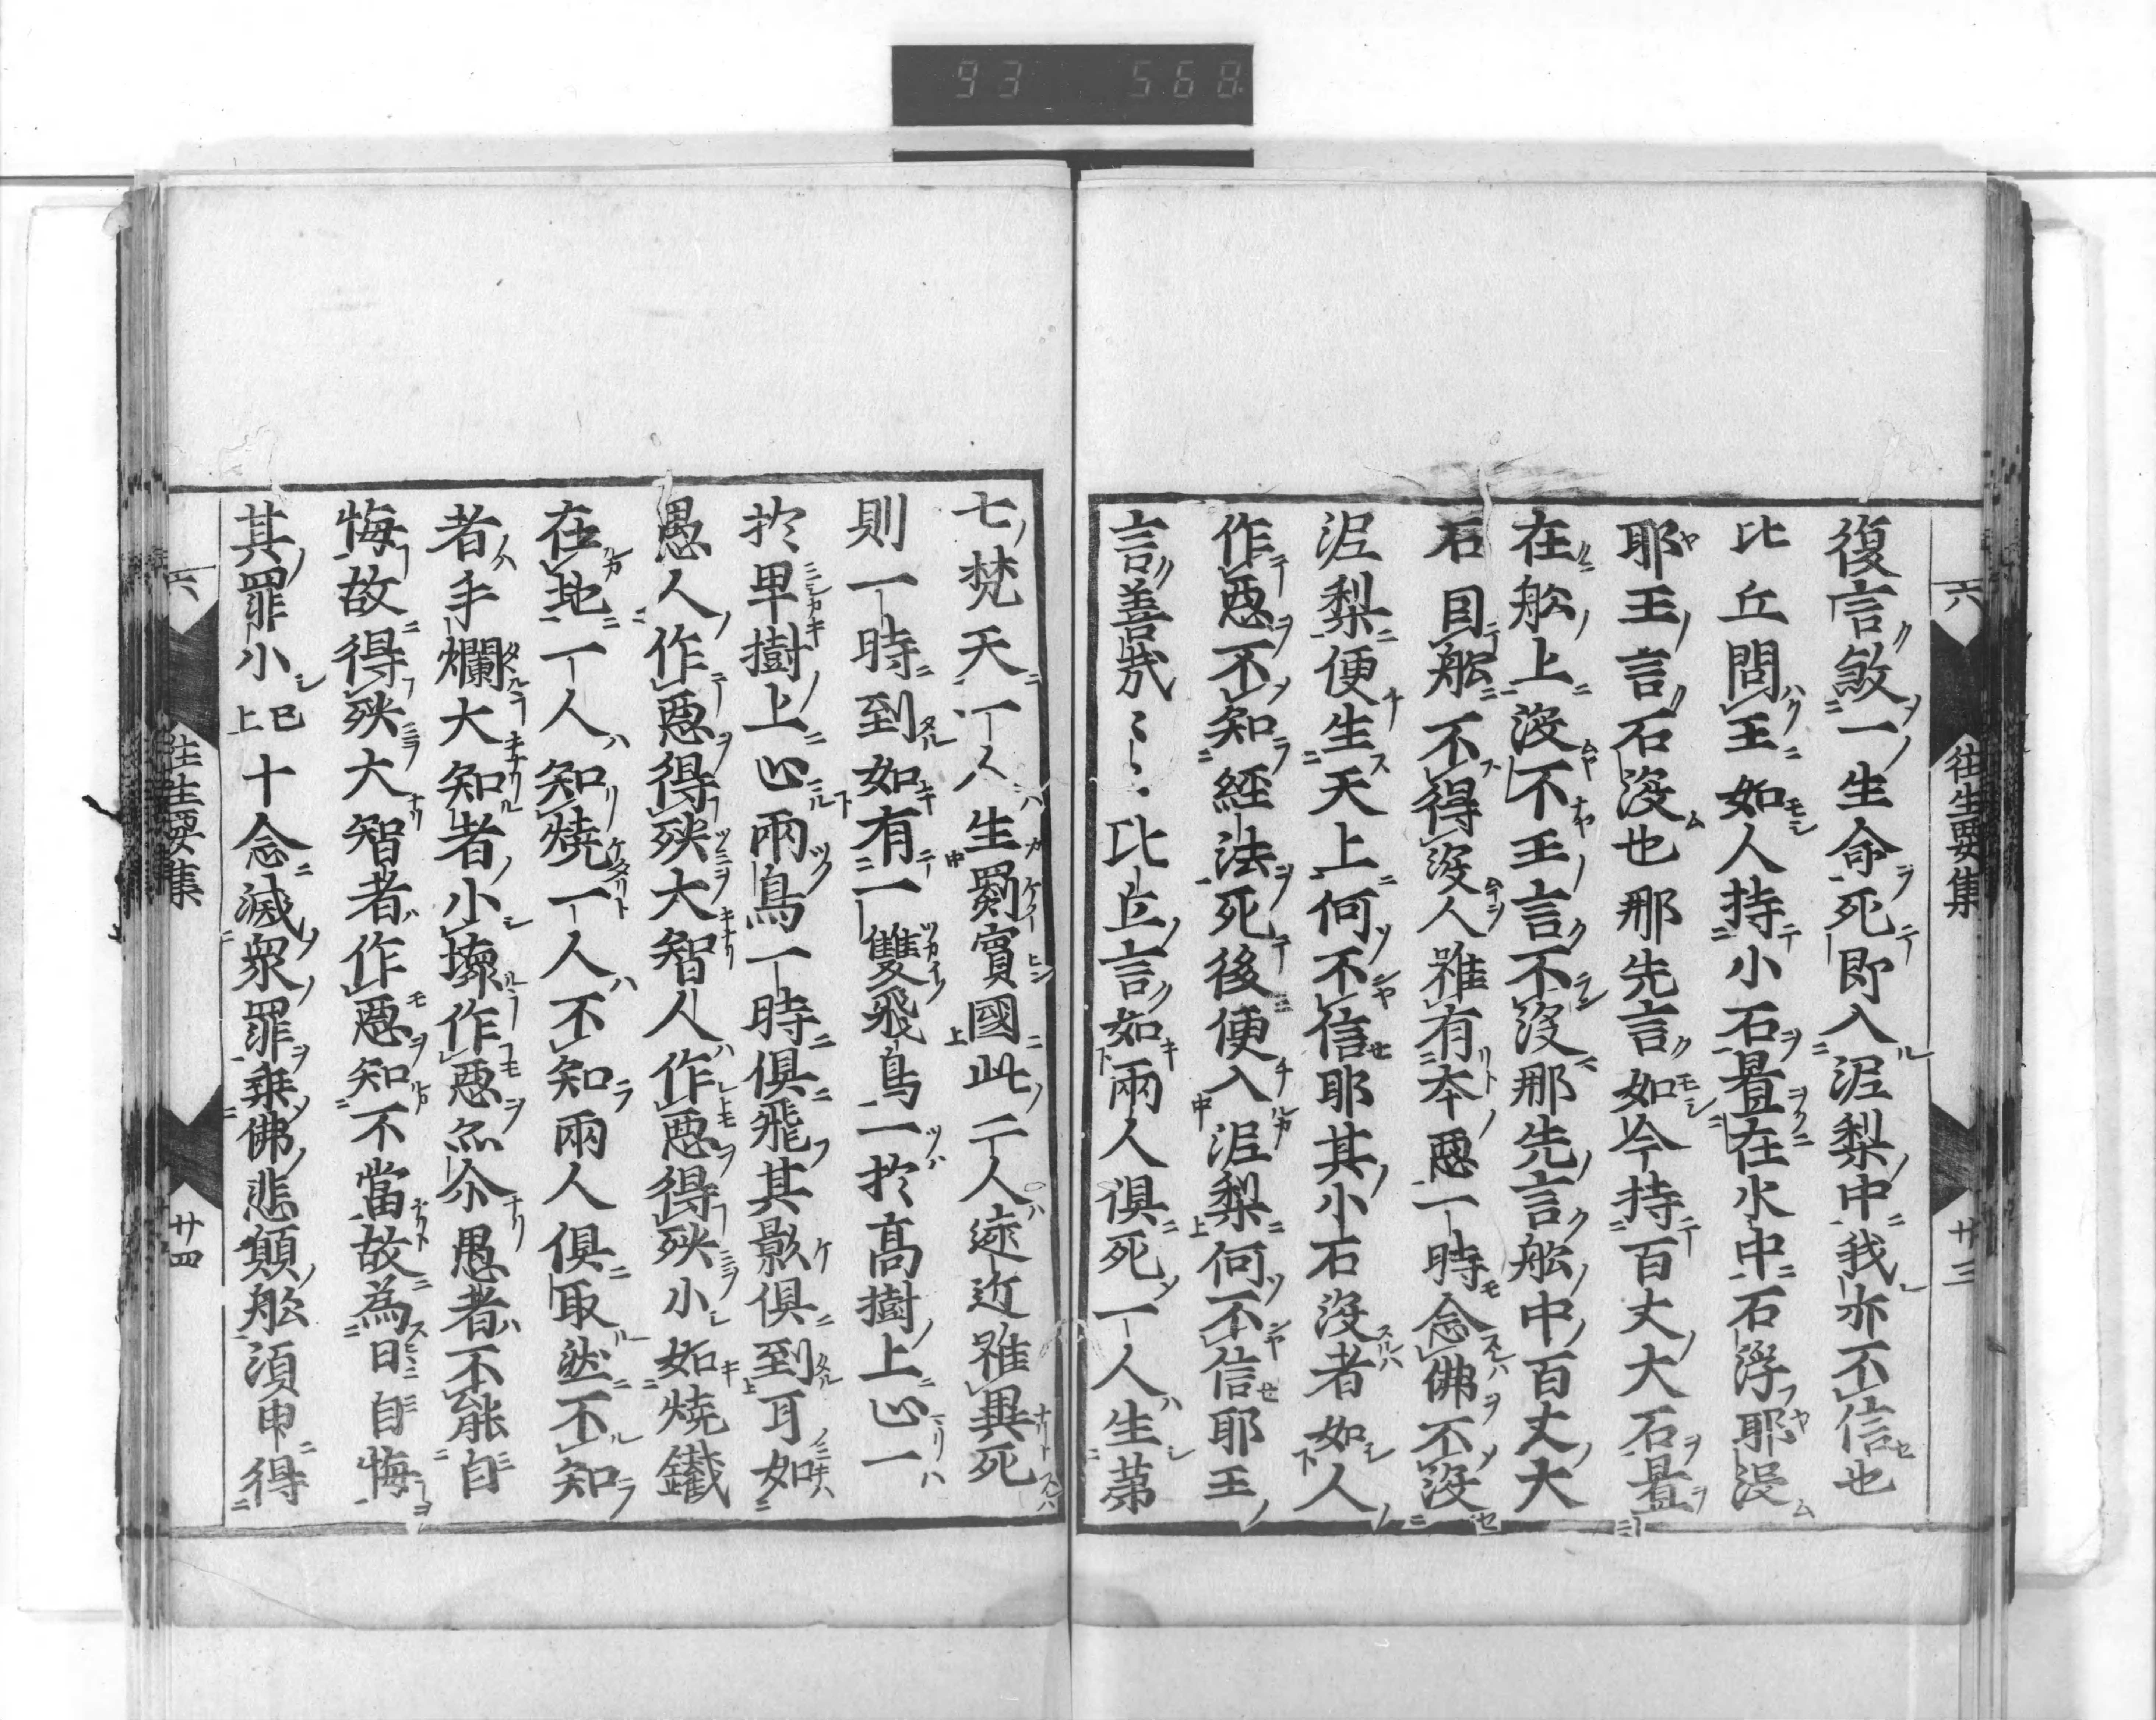 93 568
六 往生要集 廿三
復言殺一生命死即入泥梨中我亦不信也
比丘問王如人持小石置在水中石浮耶没
耶王言石没也那先言如今持百丈大石置
在舩上没不王言不没那先言舩中百丈大
石因舩不得没人雖有本惡一時念佛不没
泥梨便生天上何不信耶其小石没者如人
作惡不知經法死後便入泥梨何不信耶王
言善哉〻〻比丘言如兩人俱死一人生第
七梵天一人生罽賓國此二人遠近雖異死
則一時到如有一雙飛鳥一於高樹上止一
於卑樹上止兩鳥一時俱飛其影俱到耳如
愚人作惡得殃大智人作惡得殃小如燒鐵
在地一人知燒一人不知兩人俱取然不知
者手爛大知者小壞作惡亦尒愚者不能自
悔故得殃大智者作惡知不當故為日自悔
其罪小已上十念滅衆罪乗佛悲願舩須申得
六 往生要集 廿四